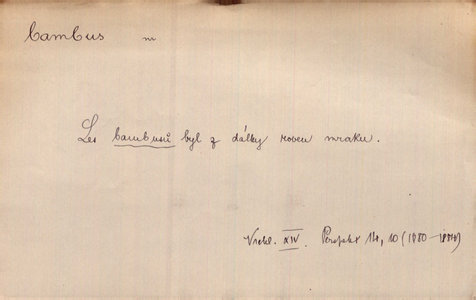 bambus m
Les bambusů byl z dálky roven mraku.
Vrchl. XIV. Perspekt 14, 10 (1880–1884)